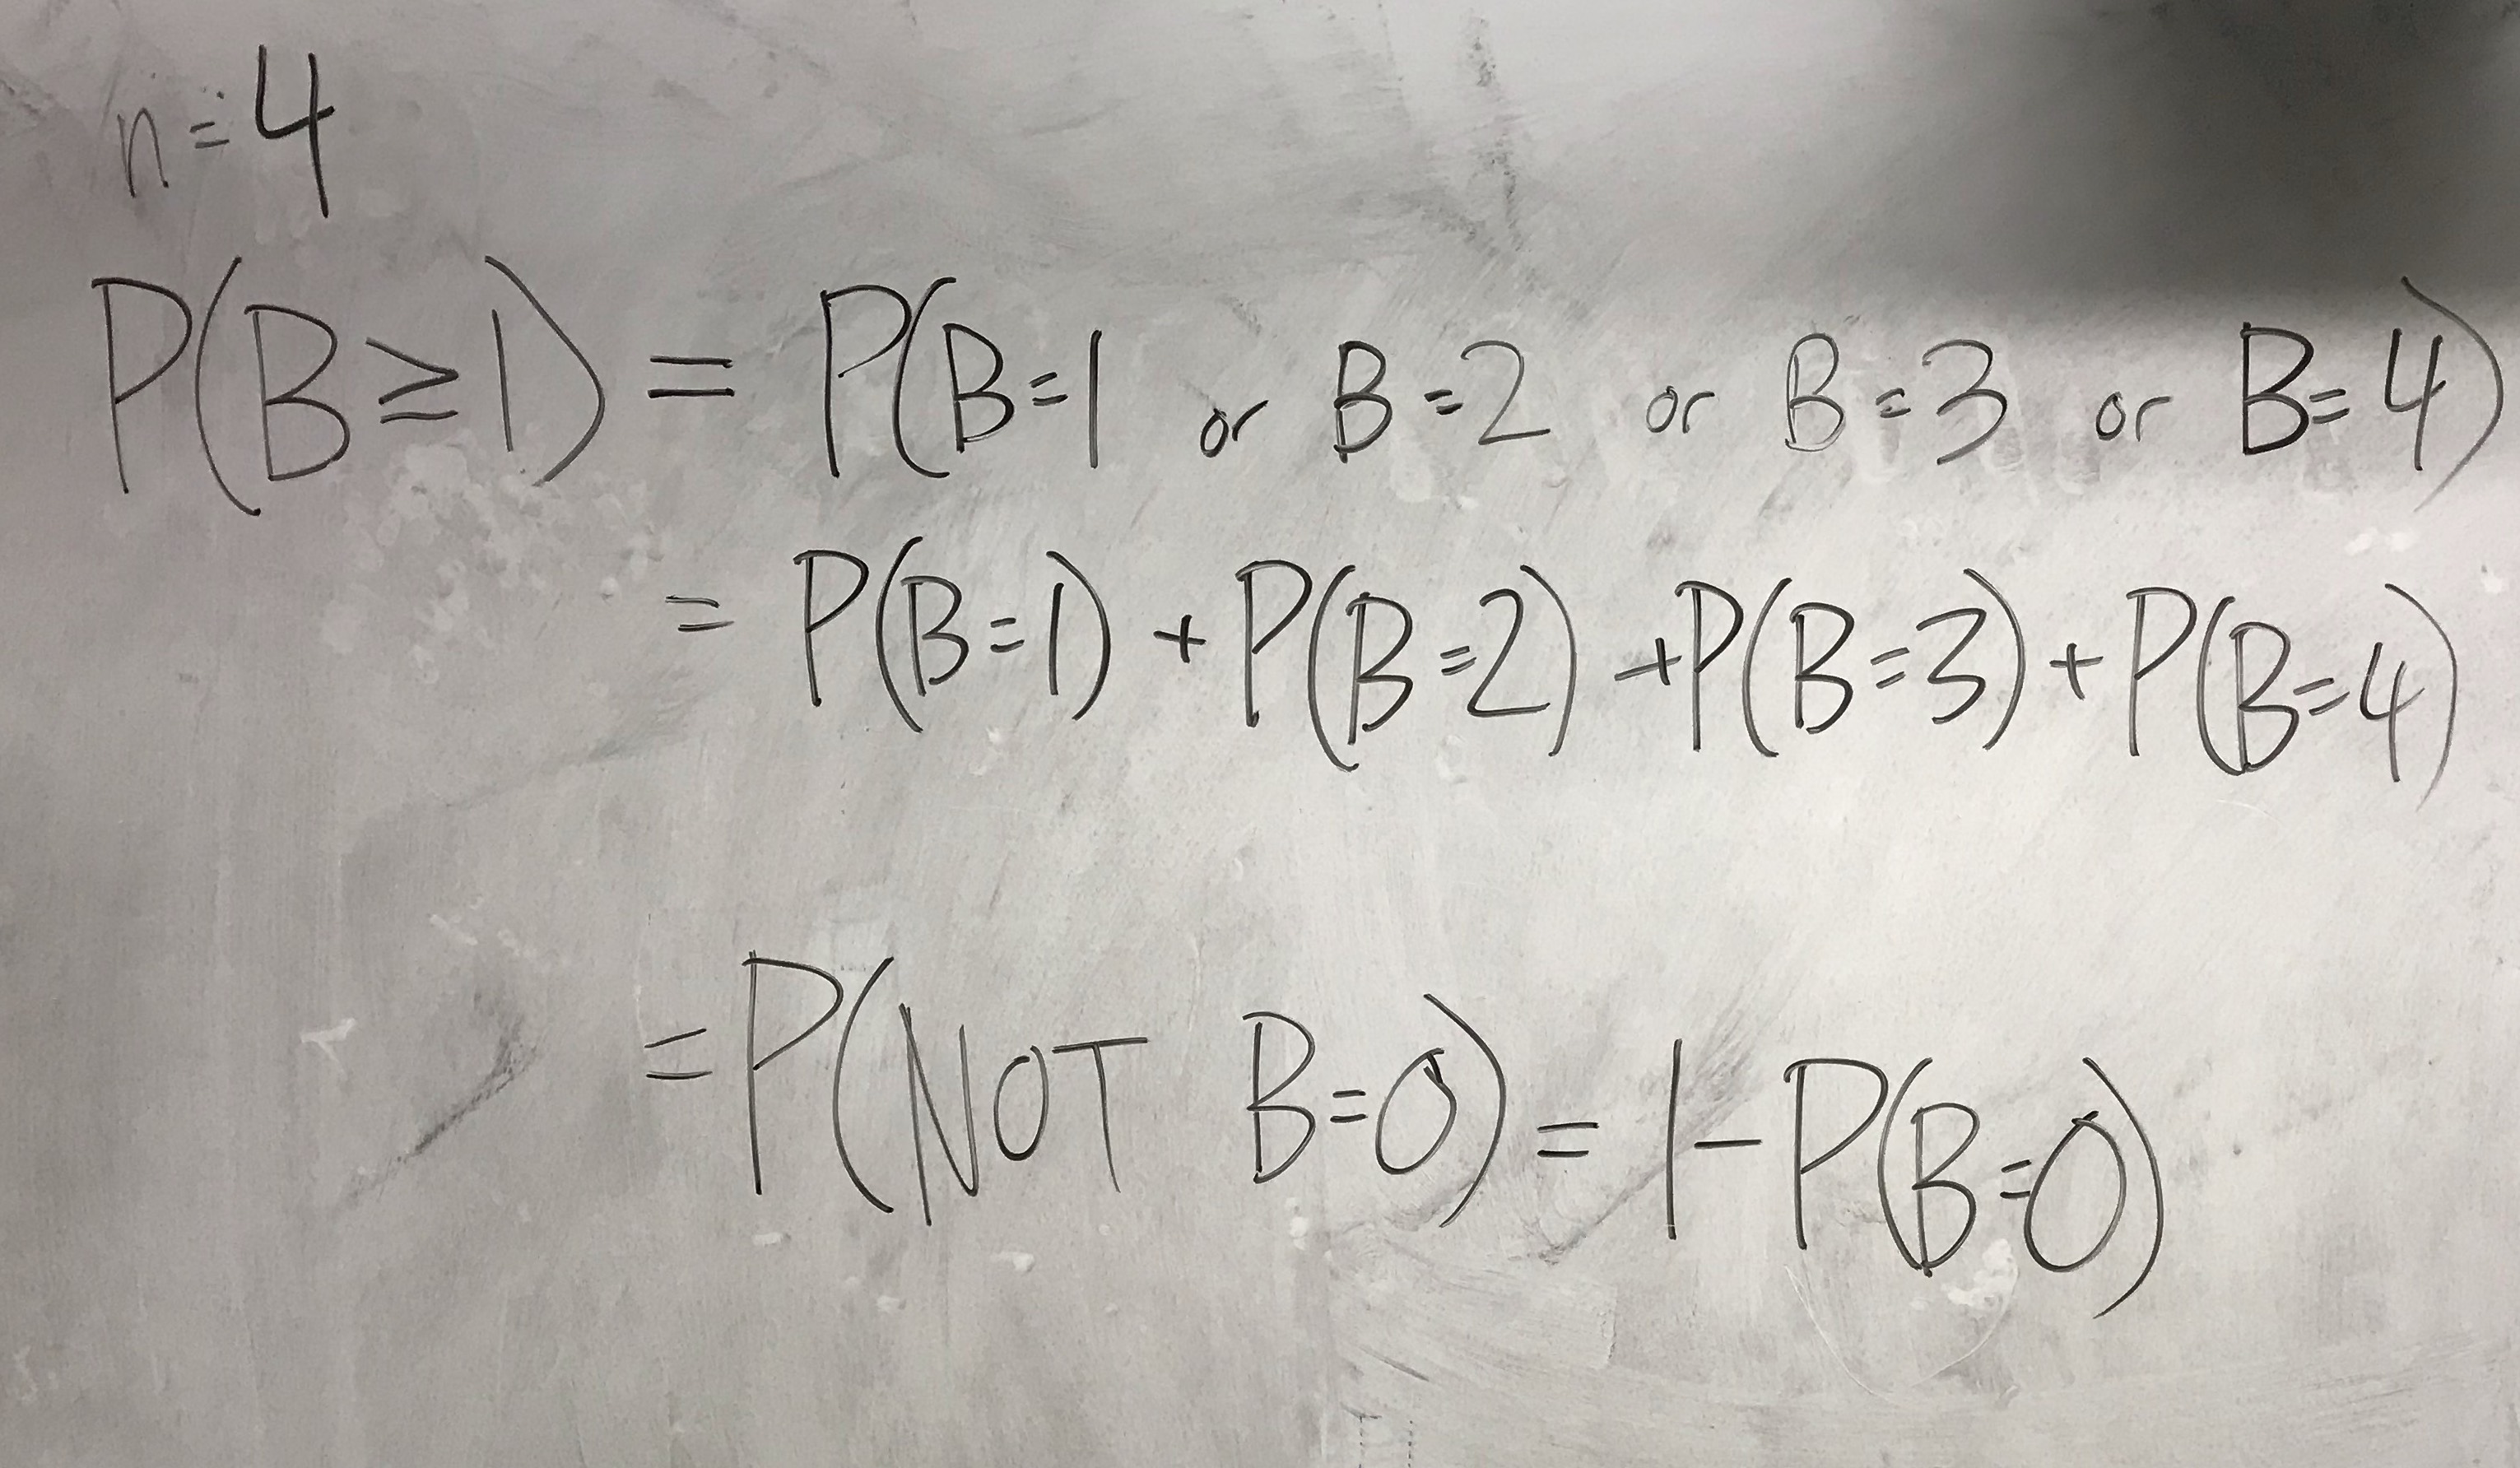 n=4
P(B≥1) = P(B=1 or B=2 or B=3 or B=4)
= P(B=1) + P(B=2) + P(B=3) + P(B=4)
= P(NOT B=0) = 1 - P(B=0)